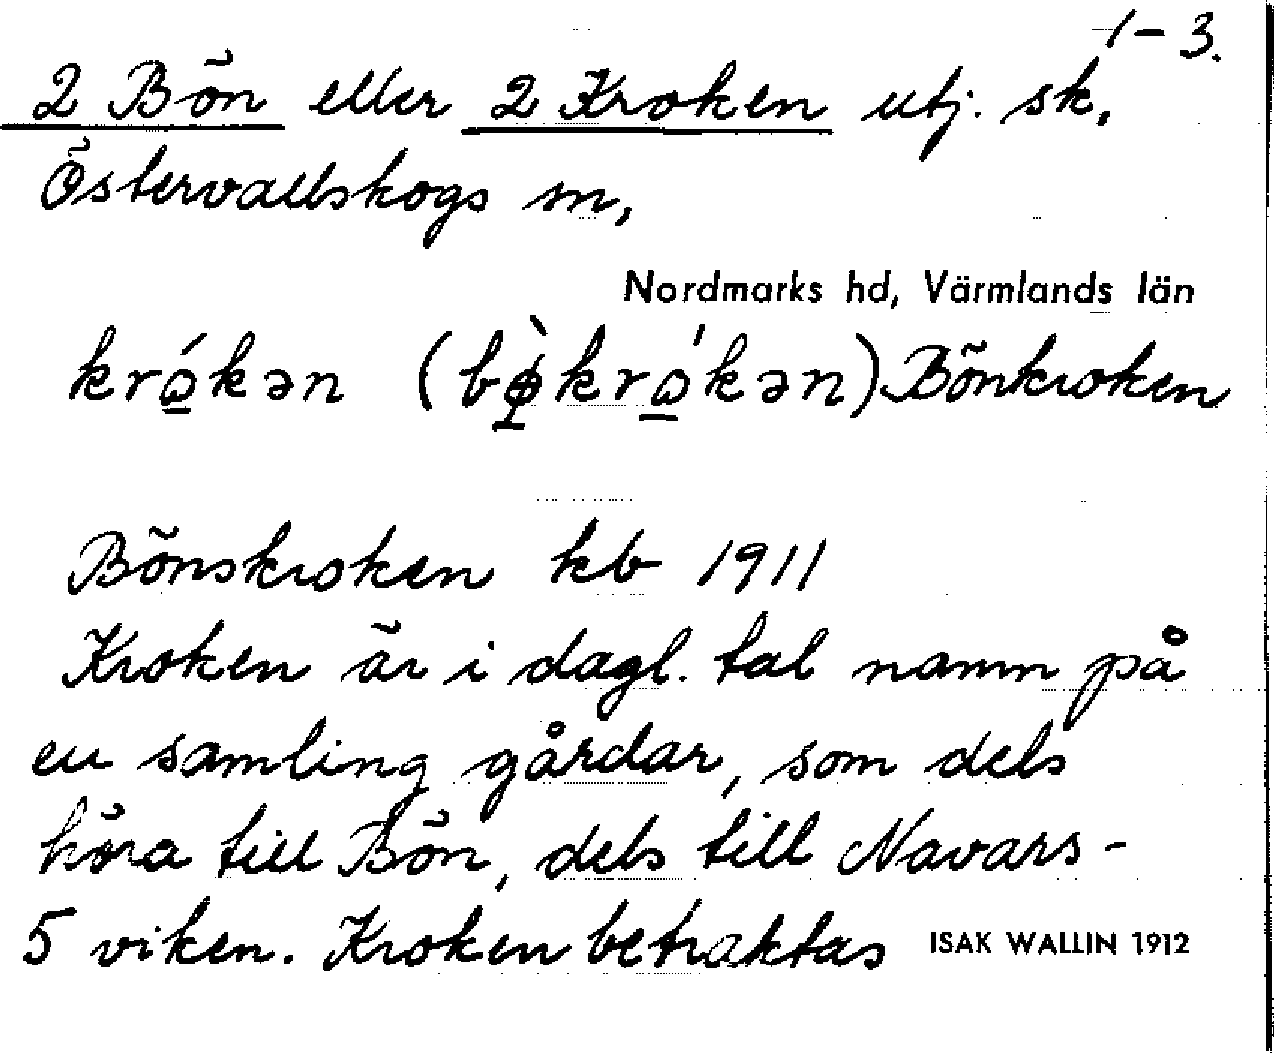 1-3.
2 Bön eller 2 Kroken utj. sk.
Östervallskogs sn,
Nordmarks hd, Värmlands län
krǫ́kən (bø̀krǫ́kən) Bönkroken
Bönskroken kb 1911
Kroken är i dagl. tal namn på
en samling gårdar, som dels
höra till Bön, dels till Navars-
5 viken. Kroken betraktas ISAK WALLIN 1912